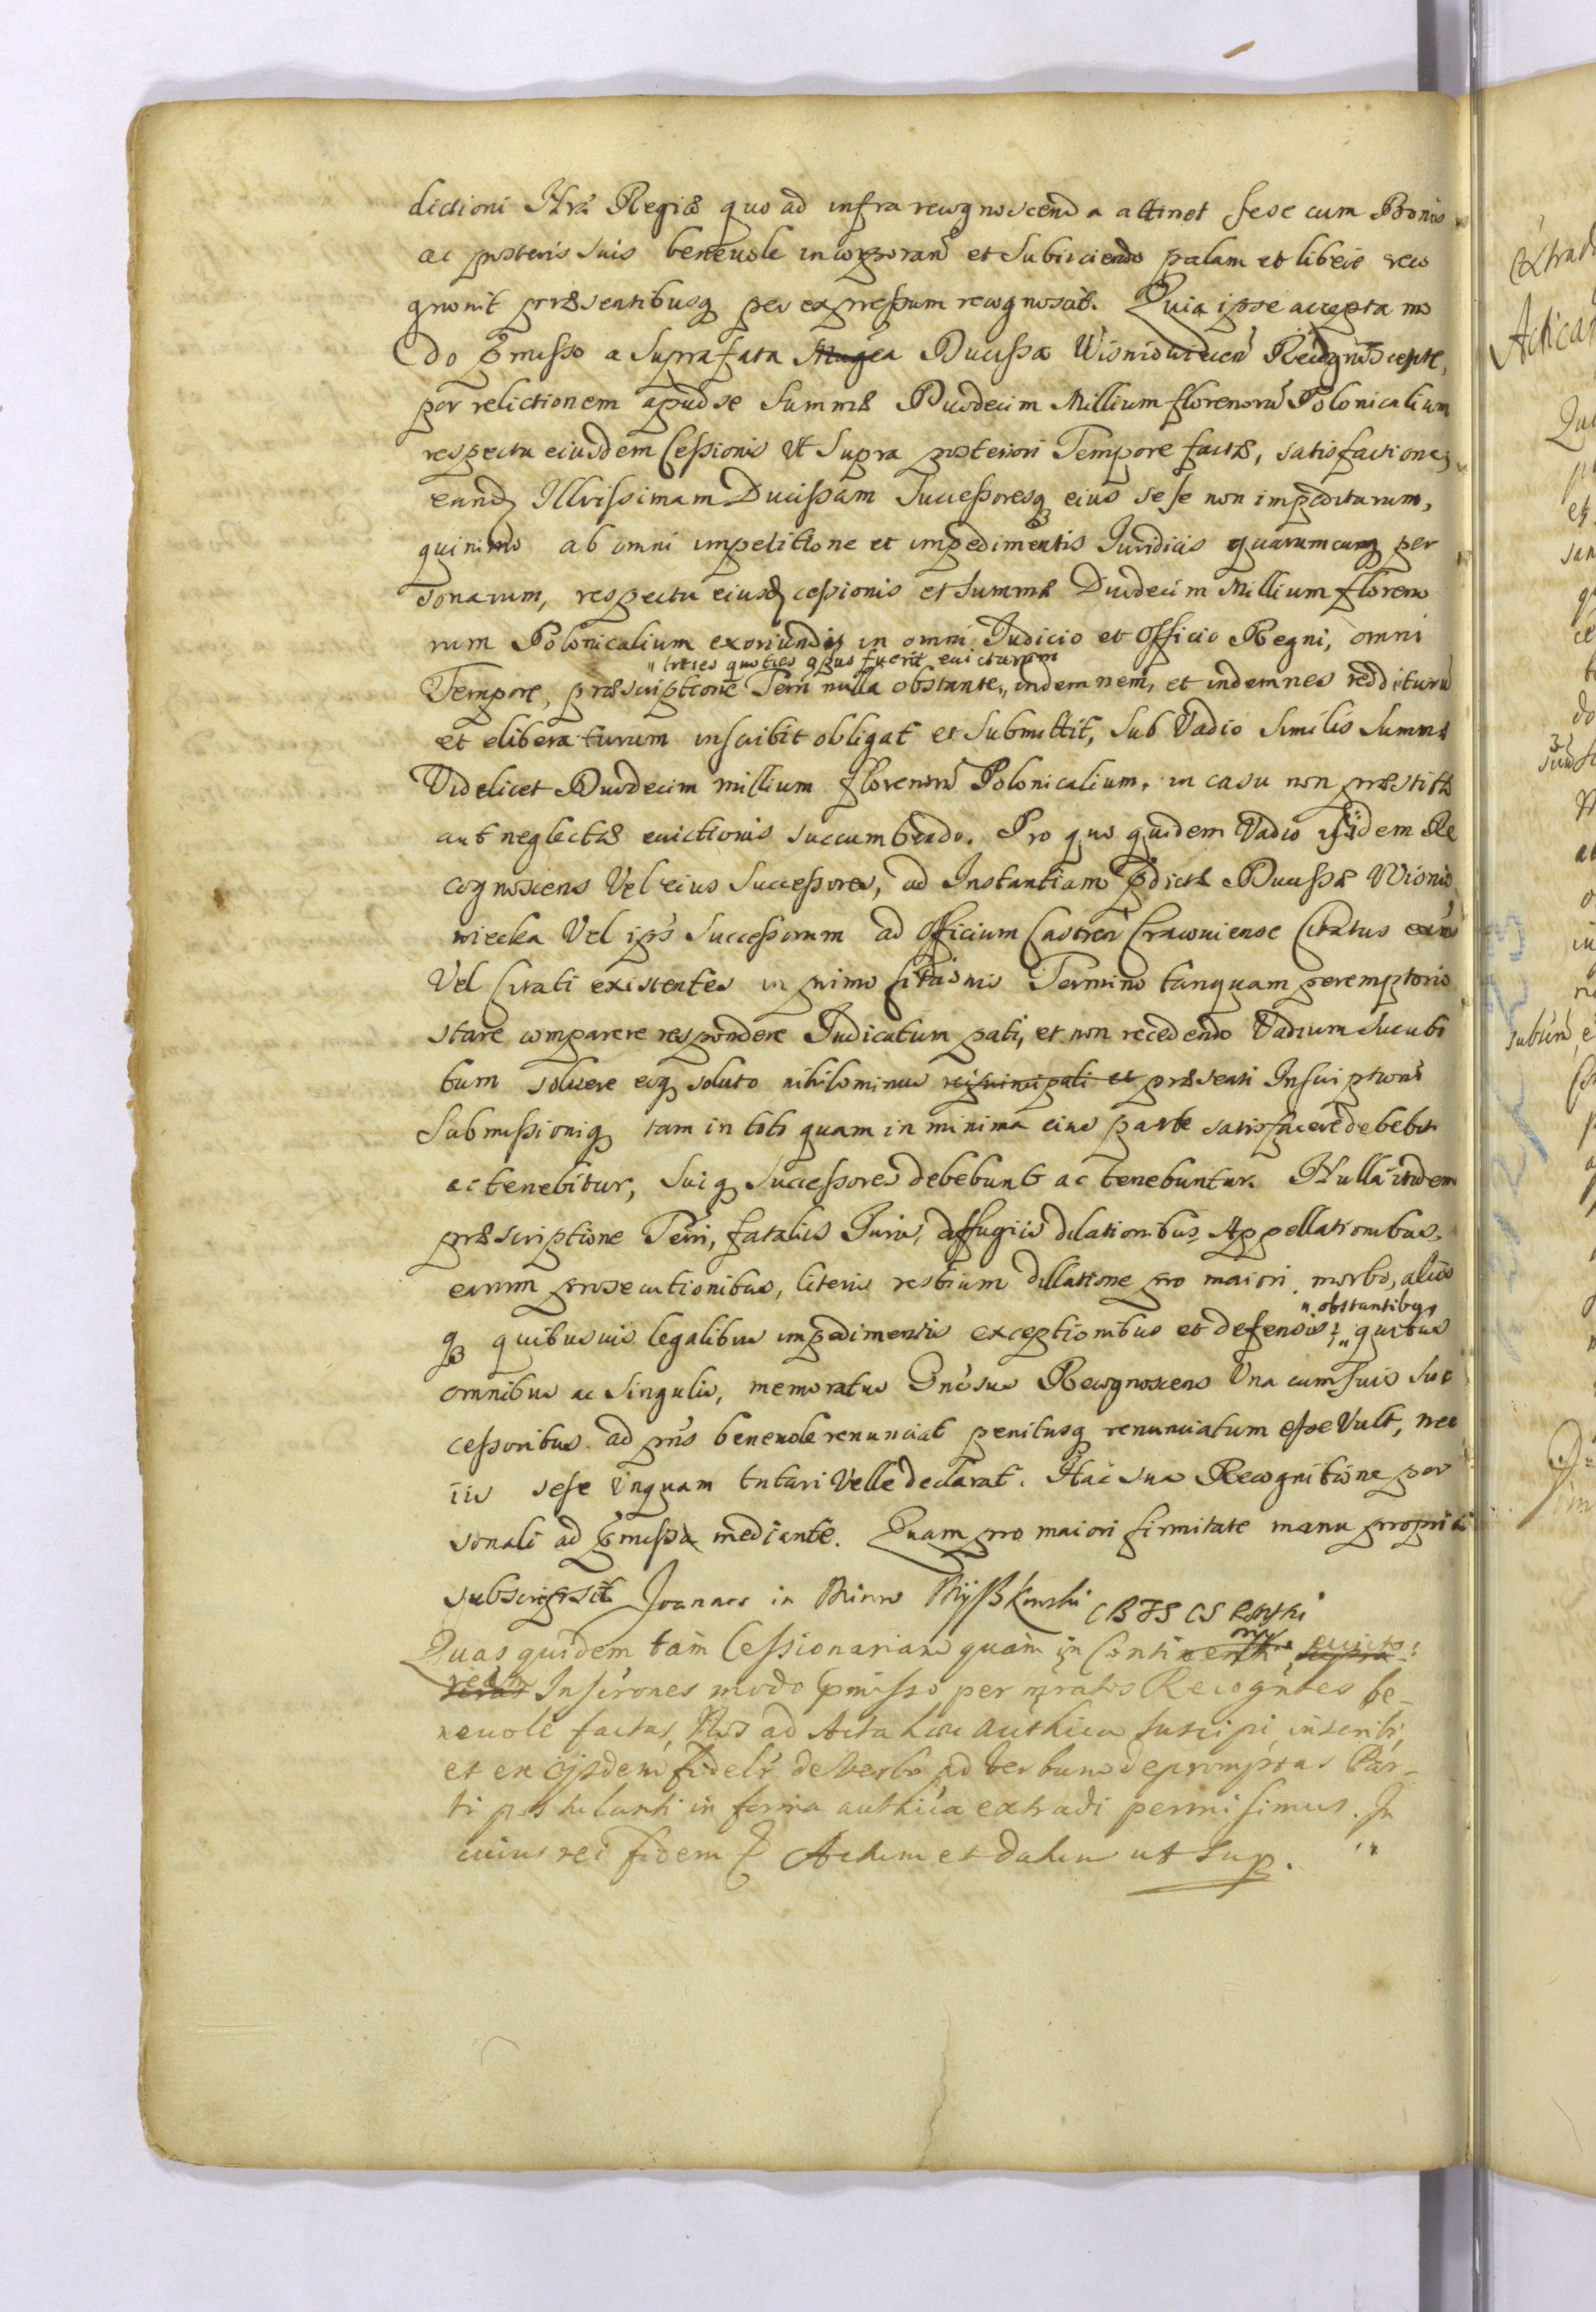 dictioni Nrã Regiæ quo ad infra recognoscenda attinet sese cum Bonis
ac posteris suis beneuole incorporanđ et subiiciendo palam et libere reco
gnouit præsentibusq per expressum recognoscit. Quia ipse accepta mo
do pmisso a suprafata Ducissa Wisniowiecen Recognoscente,
per relictionem apud se summæ Duodecim Millium florenorũ Polonicalium
respectu eiusdem Cessionis Vt supra posteriori Tempore factæ, satisfactione,
eand Illrissimam Ducissam Successoresq eius sese non impediturum,
quinimo ab omni impetitione et impedimentis Iuridicis quarumcunq per
sonarum, respectu eiusd cessionis et summæ Duodecim Millium floreno
rum Polonicalium exoriundis in omni Iudicio et Officio Regni, omni
" toties quoties opus fuerit euicturum
Tempore, præscriptione Terrñ nulla obstante, indemnem, et indemnes redditurũ
et eliberaturum inscribit obligat et submittit, sub Vadio similis summæ
Videlicet Duodecim millium florenorũ Polonicalium, in casu non præstitæ
aut neglectæ euictionis succumbendo. Pro quo quidem Vadio idem Re
cognoscens Vel eius Successores, ad Instantiam pdictæ Ducissæ Wisnio
wiecka Vel ips Successorum ad Officium Castreñ Cracouiense Citatus
Vel Citati existentes in primo Citaõnis Termino tanquam peremptorio
stare comparere respondere Iudicatum pati, et non recedendo Vadium succubi
tum soluere eoq soluto nihilominus reiprincipali et præsenti Inscriptioni
Submissioniq tam in toto quam in minima eius parte satisfacere debebit
ac tenebitur, suiq Successores debebunt ac tenebuntur. Nulla itidem
præscriptione Terrñ, fatalis Iuris, diffugiis dilationibus Appellationibus,
earum prosecutionibus, literis restium dillatione pro maiori, morbo, aliis
" obstantibus
q quibusuis legalibus impedimentis exceptionibus et defensis " quibus
omnibus ac singulis, memoratus Gnõsus Recognoscens Vna cum suis suc
cessoribus ad pns beneuole renunciat penitusq renunciatum esse Vult, nec
iis sese vnquam tutari Velle declarat. Hac sua Recognitione per
sonali ad pmissa mediante. Quam pro maiori firmitate manu propria
subscripsit Joannes in Mirow
Quas quidem tam Cessionariam quam in
Inscrones modo pmisso per Recogntes be-
neuole factas, Nos ad Acta haec authica suscipi, inscribi,
et ex ijsdem fideli de verbo ad verbum depromptas Par-
ti postulanti in forma authica extradi permisimus. In
cuius rei fidem Actum et datum ut sup.